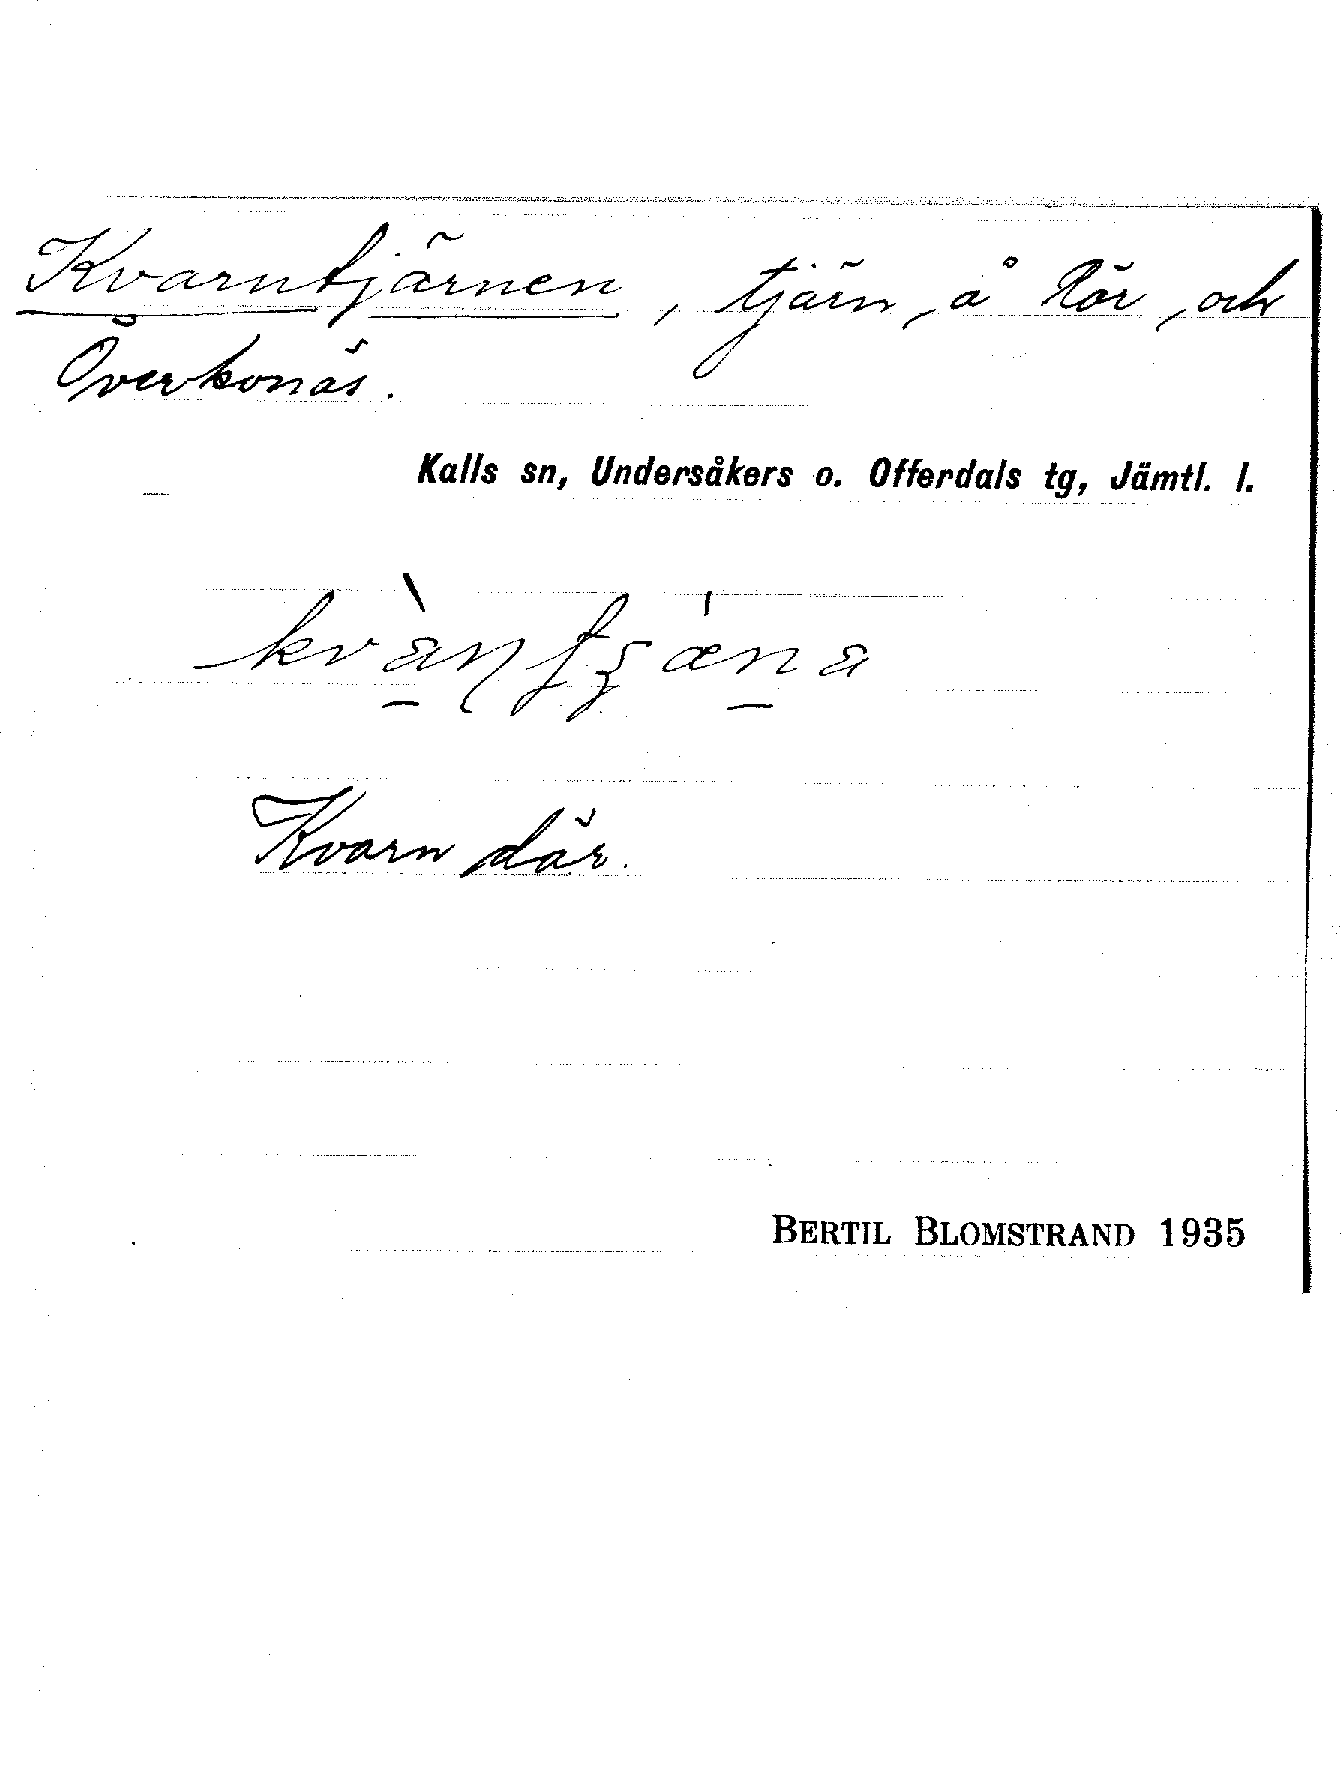 Kvarntjärnen, tjärn, å Rör, och
Överkonäs.
Kalls sn, Undersåkers o. Offerdals tg, Jämtl. l.
Kvarn där.
BERTIL BLOMSTRAND 1935